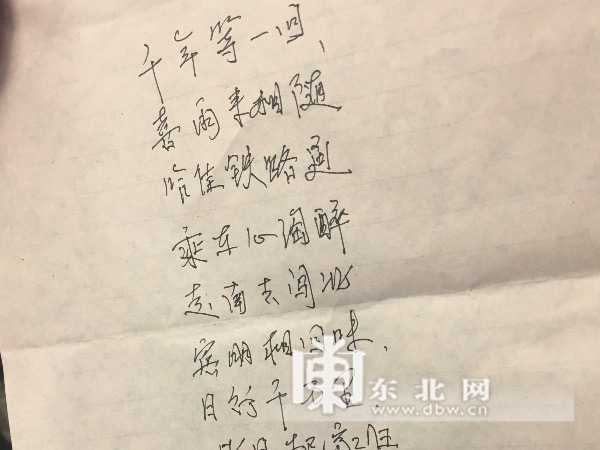 千年等一回、
喜雨来相随
哈佳铁路通
乘车心陶醉
走南去闯北
宾朋相回味、
日行千
东北网
www.dbw.cn